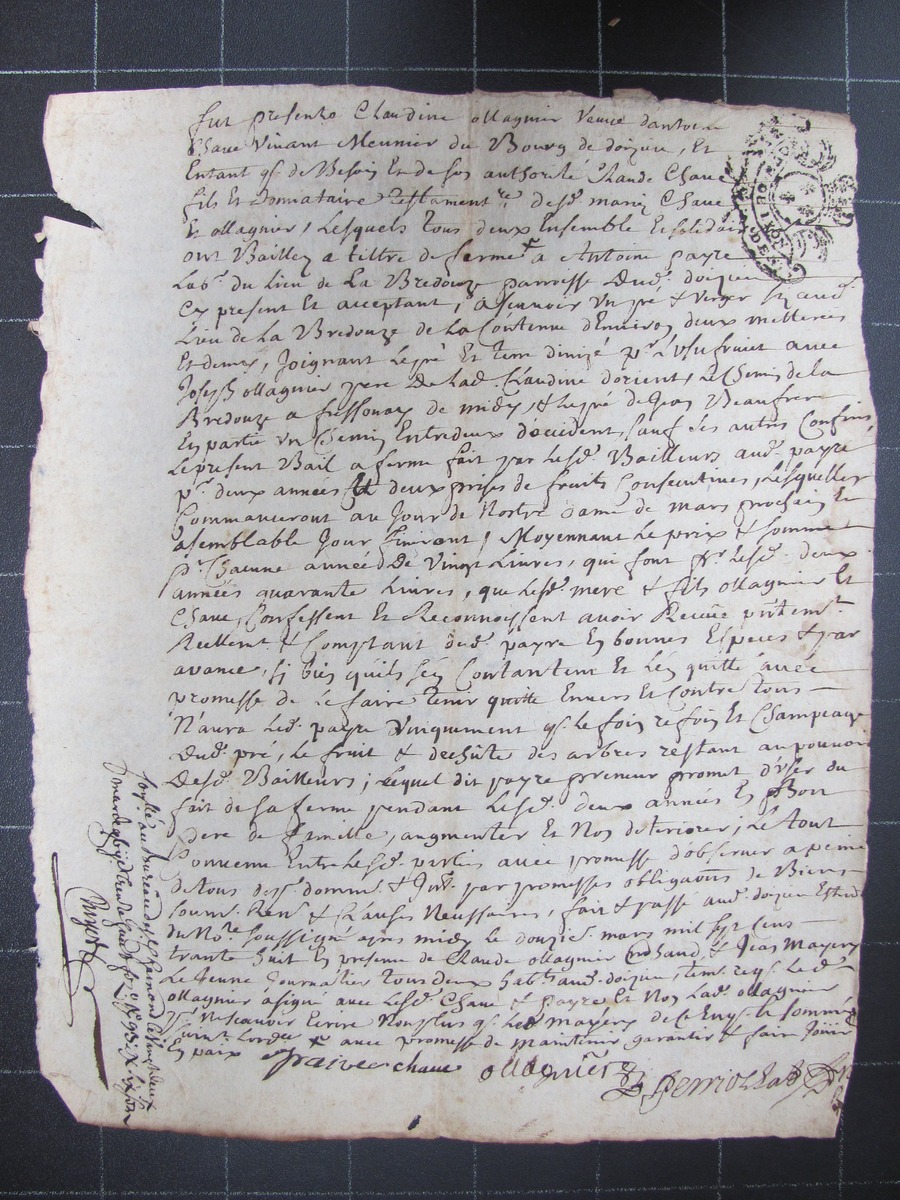 fut presente Claudine ollagnier veuve dantoine
Chave vivant Meunier du Bourg de doizieu, Et
Entant qs. de Besoin Et de son authorité Claude Chave
fils Et donnataire testament.re desd. mariés Chave
Et ollagnier, Lesquels tous deux Ensemble Et solidair
ont Baillez a tiltre de ferme a Antoine payre
Lab.r du Lieu de La Bredouze parroisse Dud. doizieu
Cy present Et acceptant, asscavoir un pré & verger
Lieu de la Bredouze de la Contenue d'Environ deux metterées
Et demy, Joignant Le pré Et terre divizé pr. L'usufruict avec
Joseph ollagnier pere de Lad. Claudine dorient, Le chemin de la
Bredouze a de midy, & Le pré de Jean Beaufrere
En partie un Chemin Entredeux doccident, sauf ses autres Confins
Le present Bail a ferme fait par Lesd. Bailleurs aud. payre
pr. deux années Et deux prises de fruits Consecutives, Lesquelles
Commanceront au Jour de Nostre dame de mars prochain Et
a semblable Jour finiront, Moyennant Le prix & somme
pr. Chacune année De Vingt Livres, qui font pr. Lesd. deux
années quarante Livres, que Lesd. mere & fils ollagnier Et
Chave, Confessent Et Reconnoissent avoir Receüe pntemt.
Reellemt. & Comptant dud. payre En bonnes Especes & par
avance, si bien quils s'en Contantent Et L'en quitte avec
promesse de Le faire tenir quitte Envers Et Contre tous
N'aura Led. payre uniquement qs. Le foin refoin Et Champeage
Dud. pré, Le fruit & dechûte des arbres restant au pouvoir
Desd. Bailleurs; Lequel dit payre preneur promet d'user du
fait de sa ferme pendant Lesd. deux années En Bon
pere de famille, augmenter Et Non deteriorer; Le tout
Convenu Entre Lesd. parties avec promesse d'observer a peine
de tous desp. domm. & Int. par promesses obligaõns de Biens
soum. Ren. & Clauses Necessaires, fait & passé aud. doizieu Estude
du No.re soussigné apres midy le douzie. mars mil sept cens
trante huit En presence de Claude ollagnier mchand, & Jean Mayery
Le Jeune Journalier tous deux habts. aud. doizieu, tem. reqs. Led.
ollagnier a signé avec Lesd. Chave & payre Et Non Lad. ollagnier
pr. Ne scavoir Ecrire Non plus qs. Led. mayery de Ce Enqs. & sommés
suivt. Lordce. avec promesse de maintenir garantir & faire Jouir
En paix
paire chave ollagnier
Perriollat